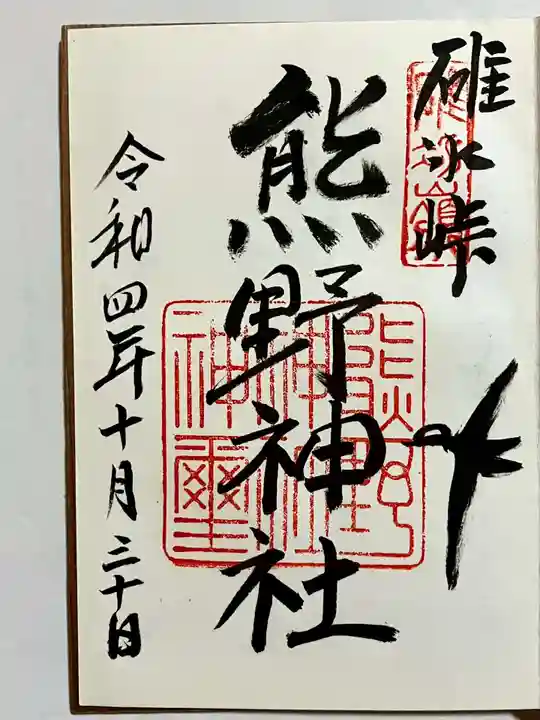 碓氷峠
熊野神社
令和四年十月三十日
熊野
神社
神璽